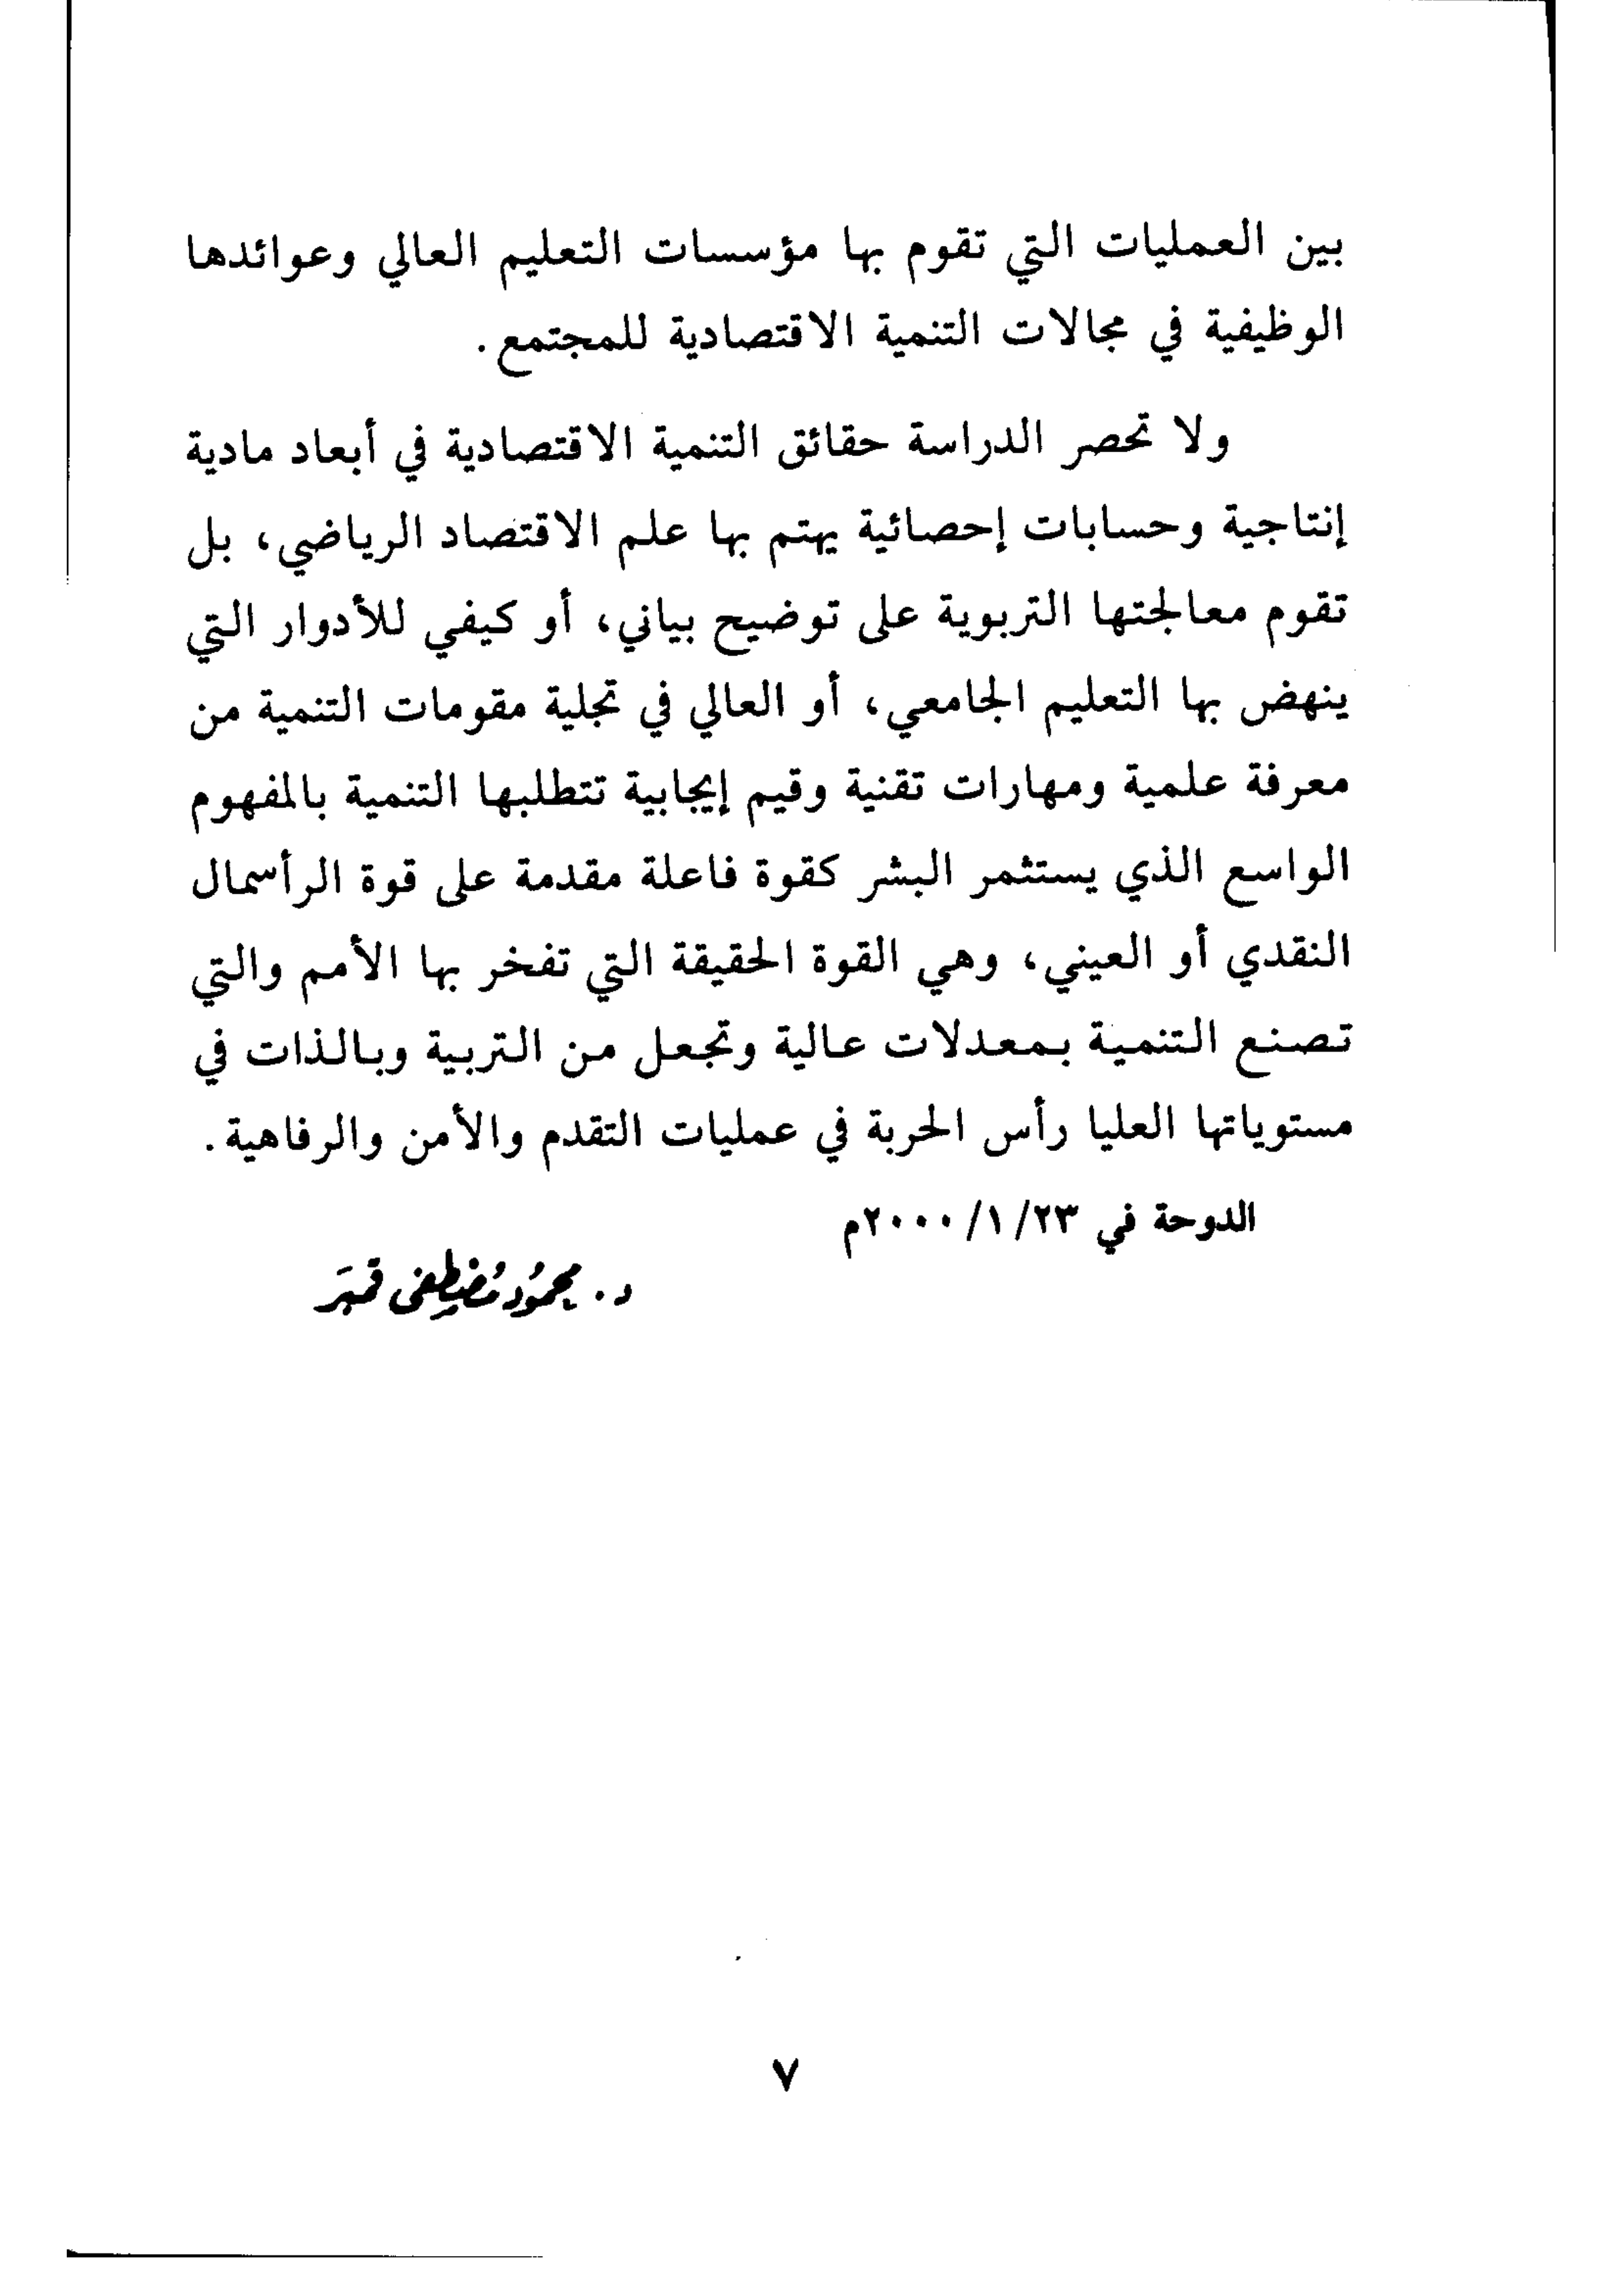 بين العمليات التي تقوم بها مؤسسات التعليم العالي وعوائدها
الوظيفية في مجالات التنمية الاقتصادية للمجتمع.
ولا تحصر الدراسة حقائق التنمية الاقتصادية في أبعاد مادية
إنتاجية وحسابات إحصائية يهتم بها علم الاقتصاد الرياضي، بل
تقوم معالجتها التربوية على توضيح بياني، أو كيفي للأدوار التي
ينهض بها التعليم الجامعي، أو العالي في تجلية مقومات التنمية من
معرفة علمية ومهارات تقنية وقيم إيجابية تتطلبها التنمية بالمفهوم
الواسع الذي يستثمر البشر كقوة فاعلة مقدمة على قوة الرأسمال
النقدي أو العيني، وهي القوة الحقيقة التي تفخر بها الأمم والتي
تصنع التنمية بمعدلات عالية وتجعل من التربية وبالذات في
مستوياتها العليا رأس الحربة في عمليات التقدم والأمن والرفاهية.
الدوحة في ٢٣/ ١/ ٢٠٠٠م
د. محمُود مُصْطِفى قمبَر
٧